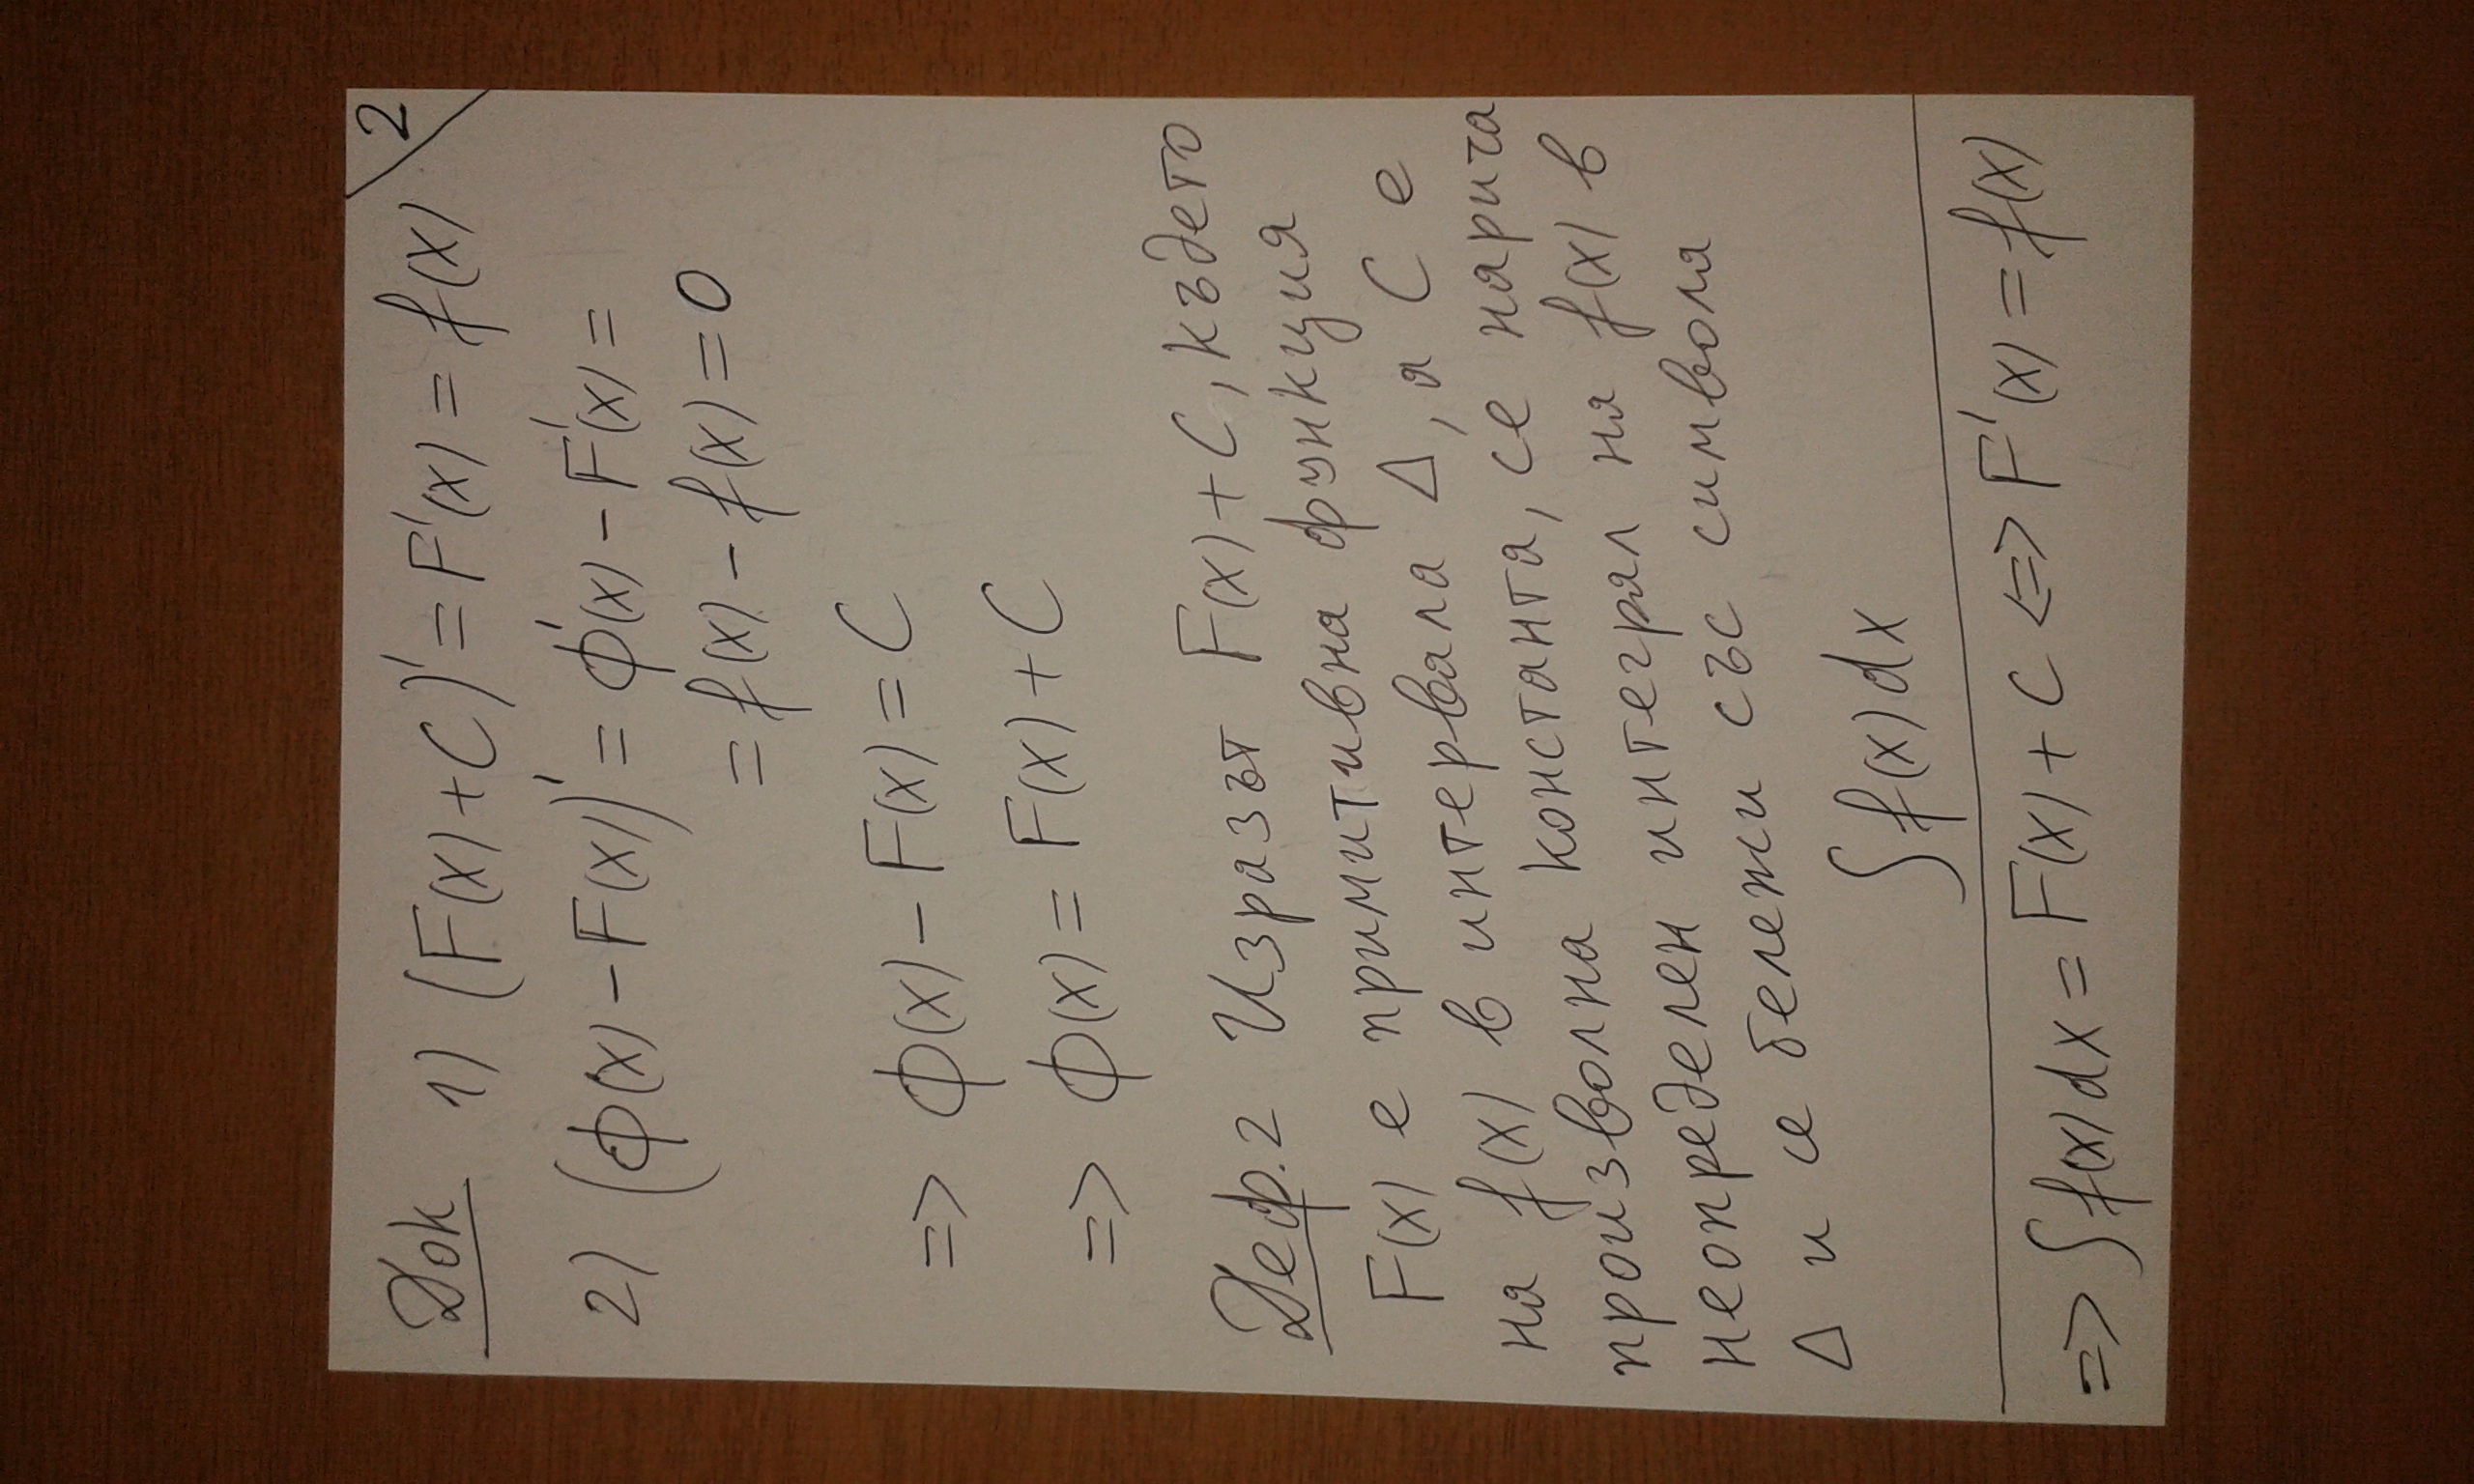 2
Док 1) (F(x)+C)' = F'(x) = f(x)
2) (ϕ(x) – F(x))' = ϕ'(x) – F'(x) =
= f(x) – f(x) = 0
=> ϕ(x) – F(x) = C
=> ϕ(x) = F(x) + C
Деф.2 Изразът F(x)+C, където
F(x) е примитивна функция
на f(x) в интервала Δ, а C е
произволна константа, се нарича
неопределен интеграл на f(x) в
Δ и се бележи със символа
∫f(x)dx
=> ∫f(x)dx = F(x) + C <=> F'(x) = f(x)